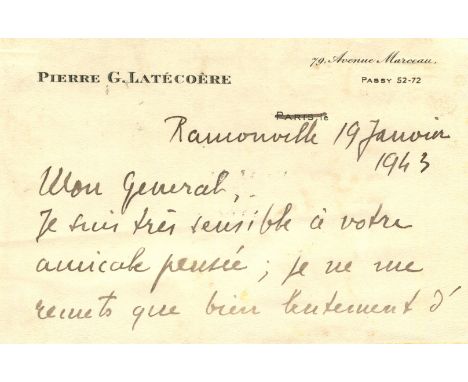 79. Avenue Marceau.
PIERRE G. LATÉCOÈRE
PASSY 52-72
PARIS, le
Ramonville 19 Janvier
1943
Mon General,
Je suis très sensible à votre
amicale pensée ; je ne me
remets que bien lentement d'